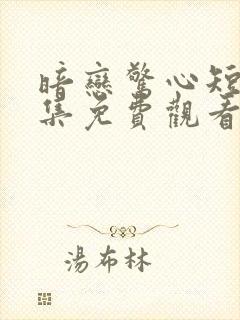 暗戀驚心短
集免費觀看
湯布林